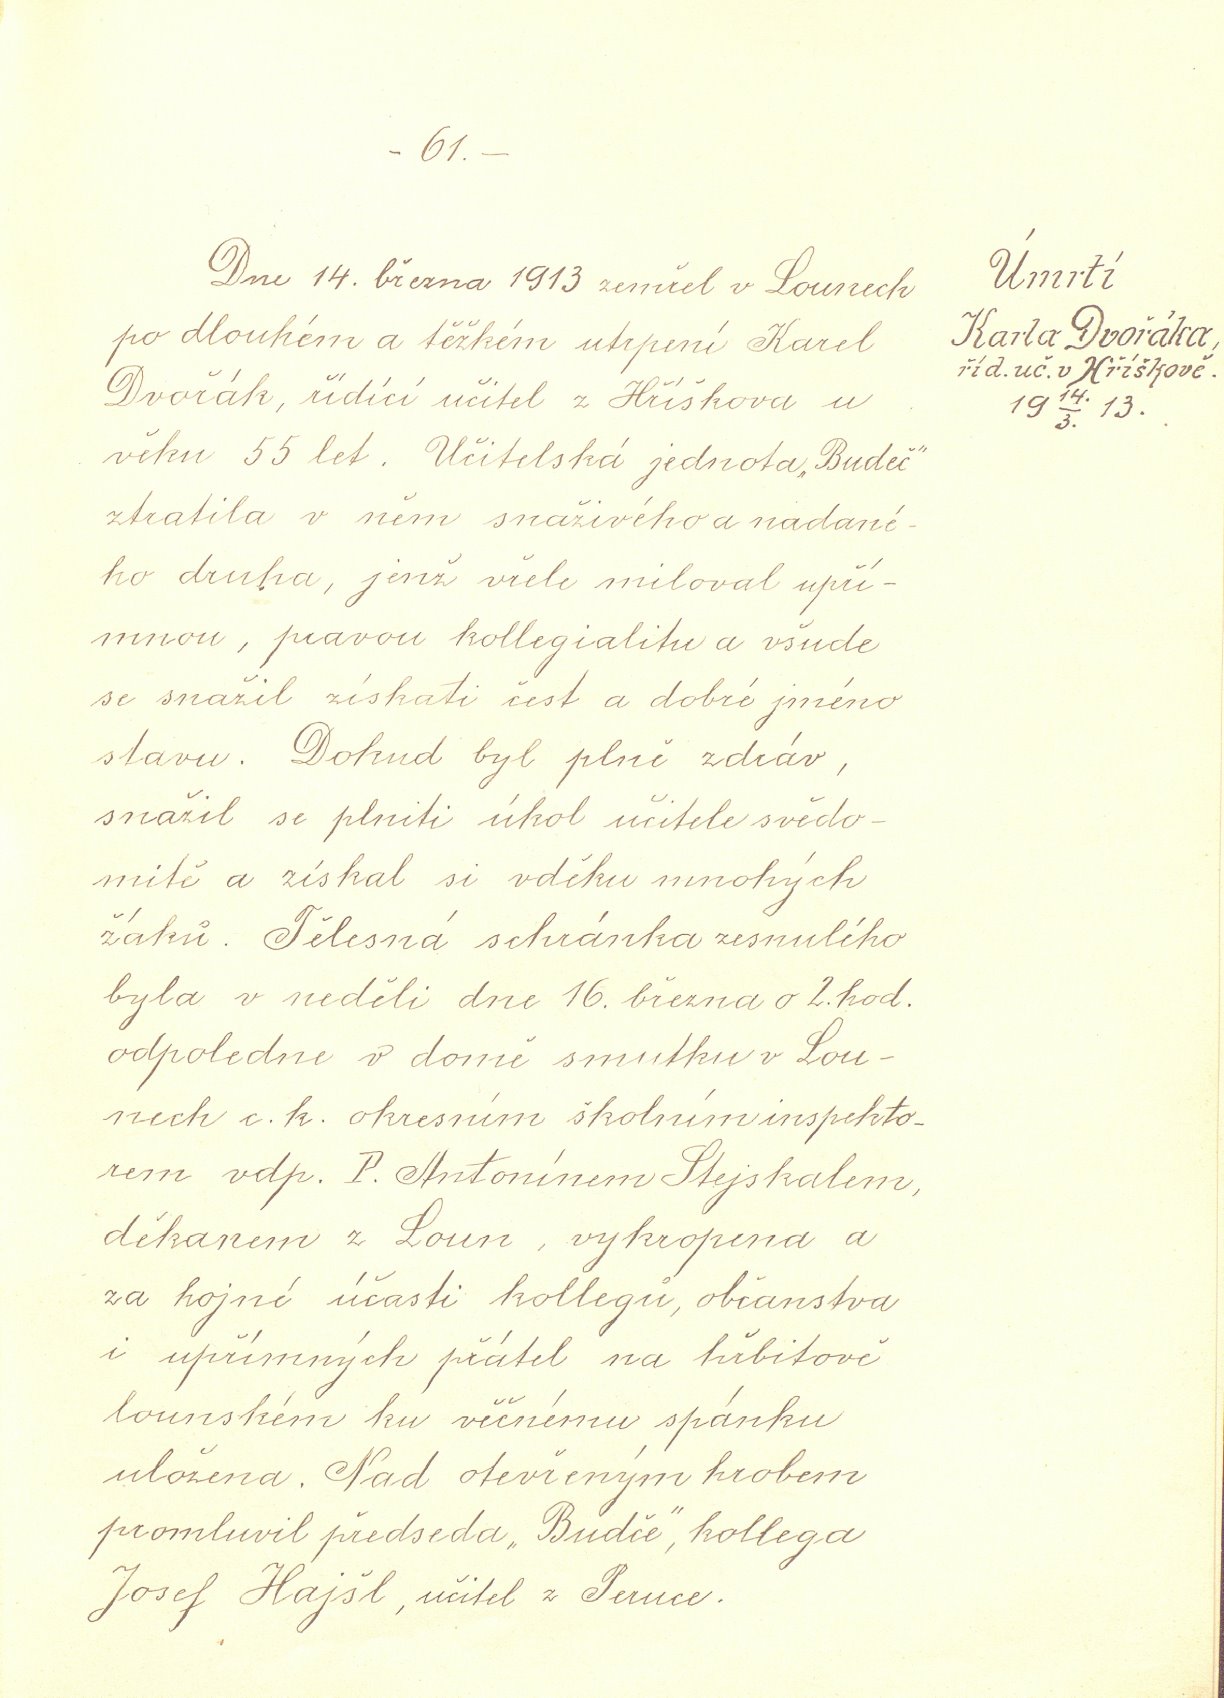 - 61. -
Dne 14. března 1913 zemřel v Lounech
po dlouhém a těžkém utrpení Karel
Dvořák, řídící učitel z Hříškova u
věku 55 let. Učitelská jednota „Budeč"
ztratila v něm snaživého a nadané-
ho druha, jenž vřele miloval upří-
mnou, pravou kollegialitu a všude
se snažil získati čest a dobré jméno
stavu. Dokud byl plně zdráv,
snažil se plniti úkol učitele svědo-
mitě a získal si vděku mnohých
žáků. Tělesná schránka zesnulého
byla v neděli dne 16. března o 2. hod.
odpoledne v domě smutku v Lou-
nech c. k. okresním školním inspekto-
rem vdp. P. Antonínem Stejskalem,
děkanem z Loun, vykropena a
za hojné účasti kollegů, občanstva
i upřímných přátel na hřbitově
lounském ku věčnému spánku
uložena. Nad otevřeným hrobem
promluvil předseda „Budče", kollega
Josef Hajšl, učitel z Peruce.
Úmrtí
Karla Dvořáka,
říd. uč. v Hříškově.
19 14./3. 13.